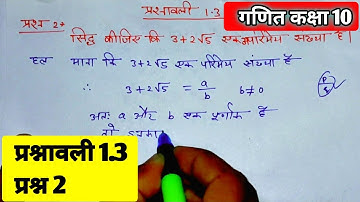 प्रश्नावली 1.3
गणित कक्षा 10
प्रश्न 2→
सिद्ध कीजिए कि 3+2√5 एक अपरिमेय संख्या है
हल माना कि 3+2√5 एक परिमेय संख्या है
∴ 3+2√5 = a/b b≠0
अतः a और b एक पूर्णांक हैं
तो
प्रश्नावली 1.3
प्रश्न 2